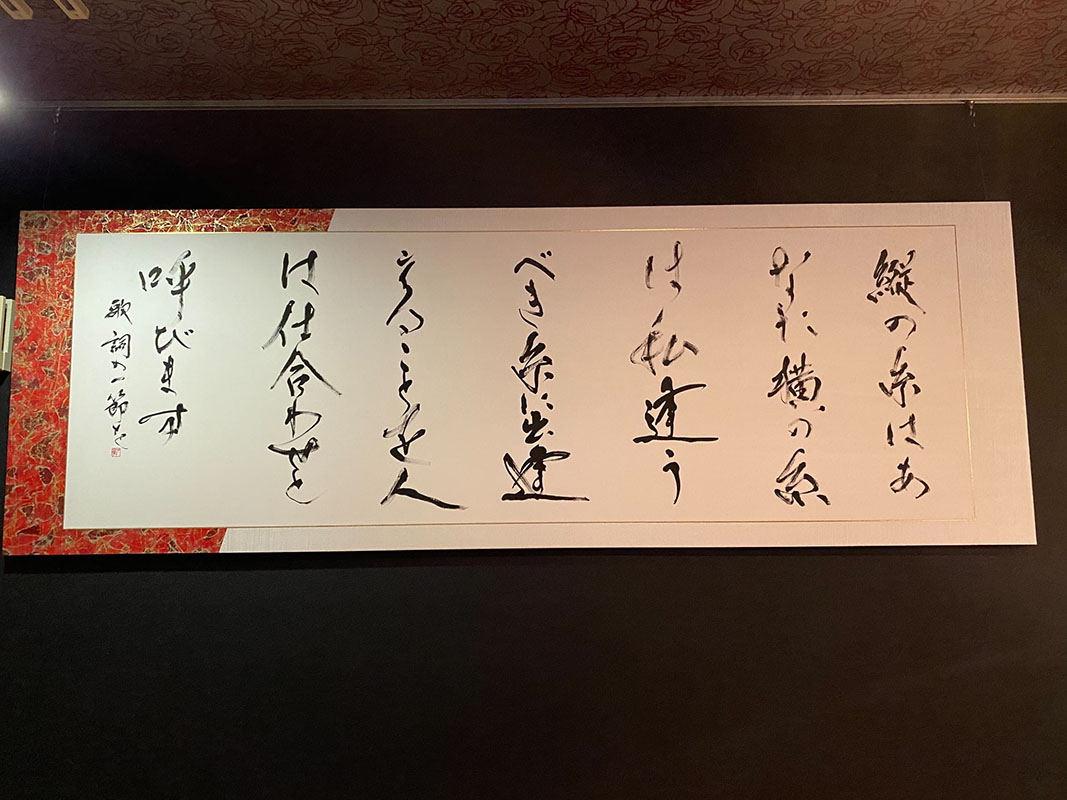 縦の糸はあ
なた横の糸
は私逢う
べき糸に出逢
えることを人
は仕合わせと
呼びます
歌詞の一節を